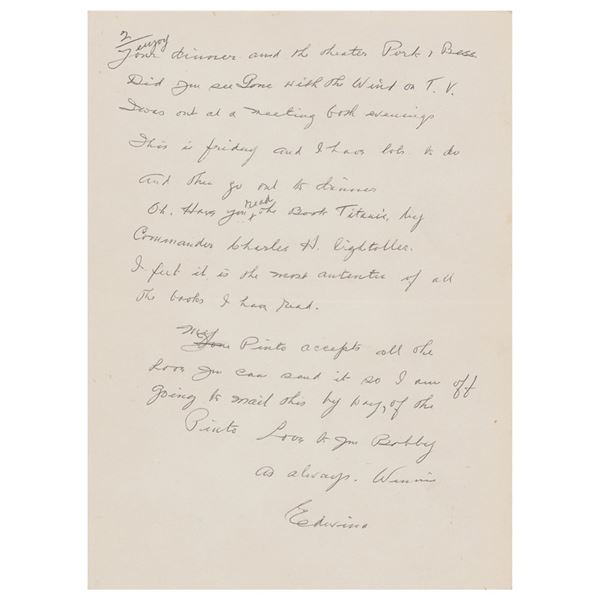 2
enjoy
your dinner and the theater Park, & Bess
Did you see Gone with the Wind on T.V.
I was out at a meeting both evenings
This is friday and I have lots to do
and then go out to dinner
Oh. Have you read the Book Titanic, by
Commander Charles H. Lightoller.
I feel it is the most autentic of all
the books I have read.
My Pinto accepts all the
Love you can send it so I am off
going to mail this by way, of the
Pinto Love to you Bobby
as always. Winnie
Edwina